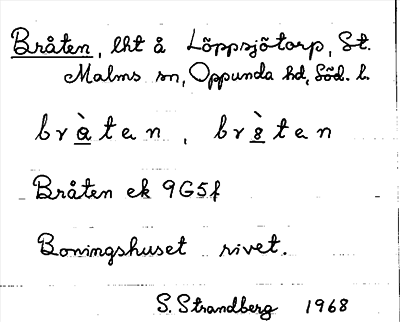 Bråten, lht å Löppsjötorp, St.
Malms sn, Oppunda hd, Söd. l.
bràten, brs̀ten
Bråten ek 9G5f
Boningshuset rivet.
S. Strandberg 1968